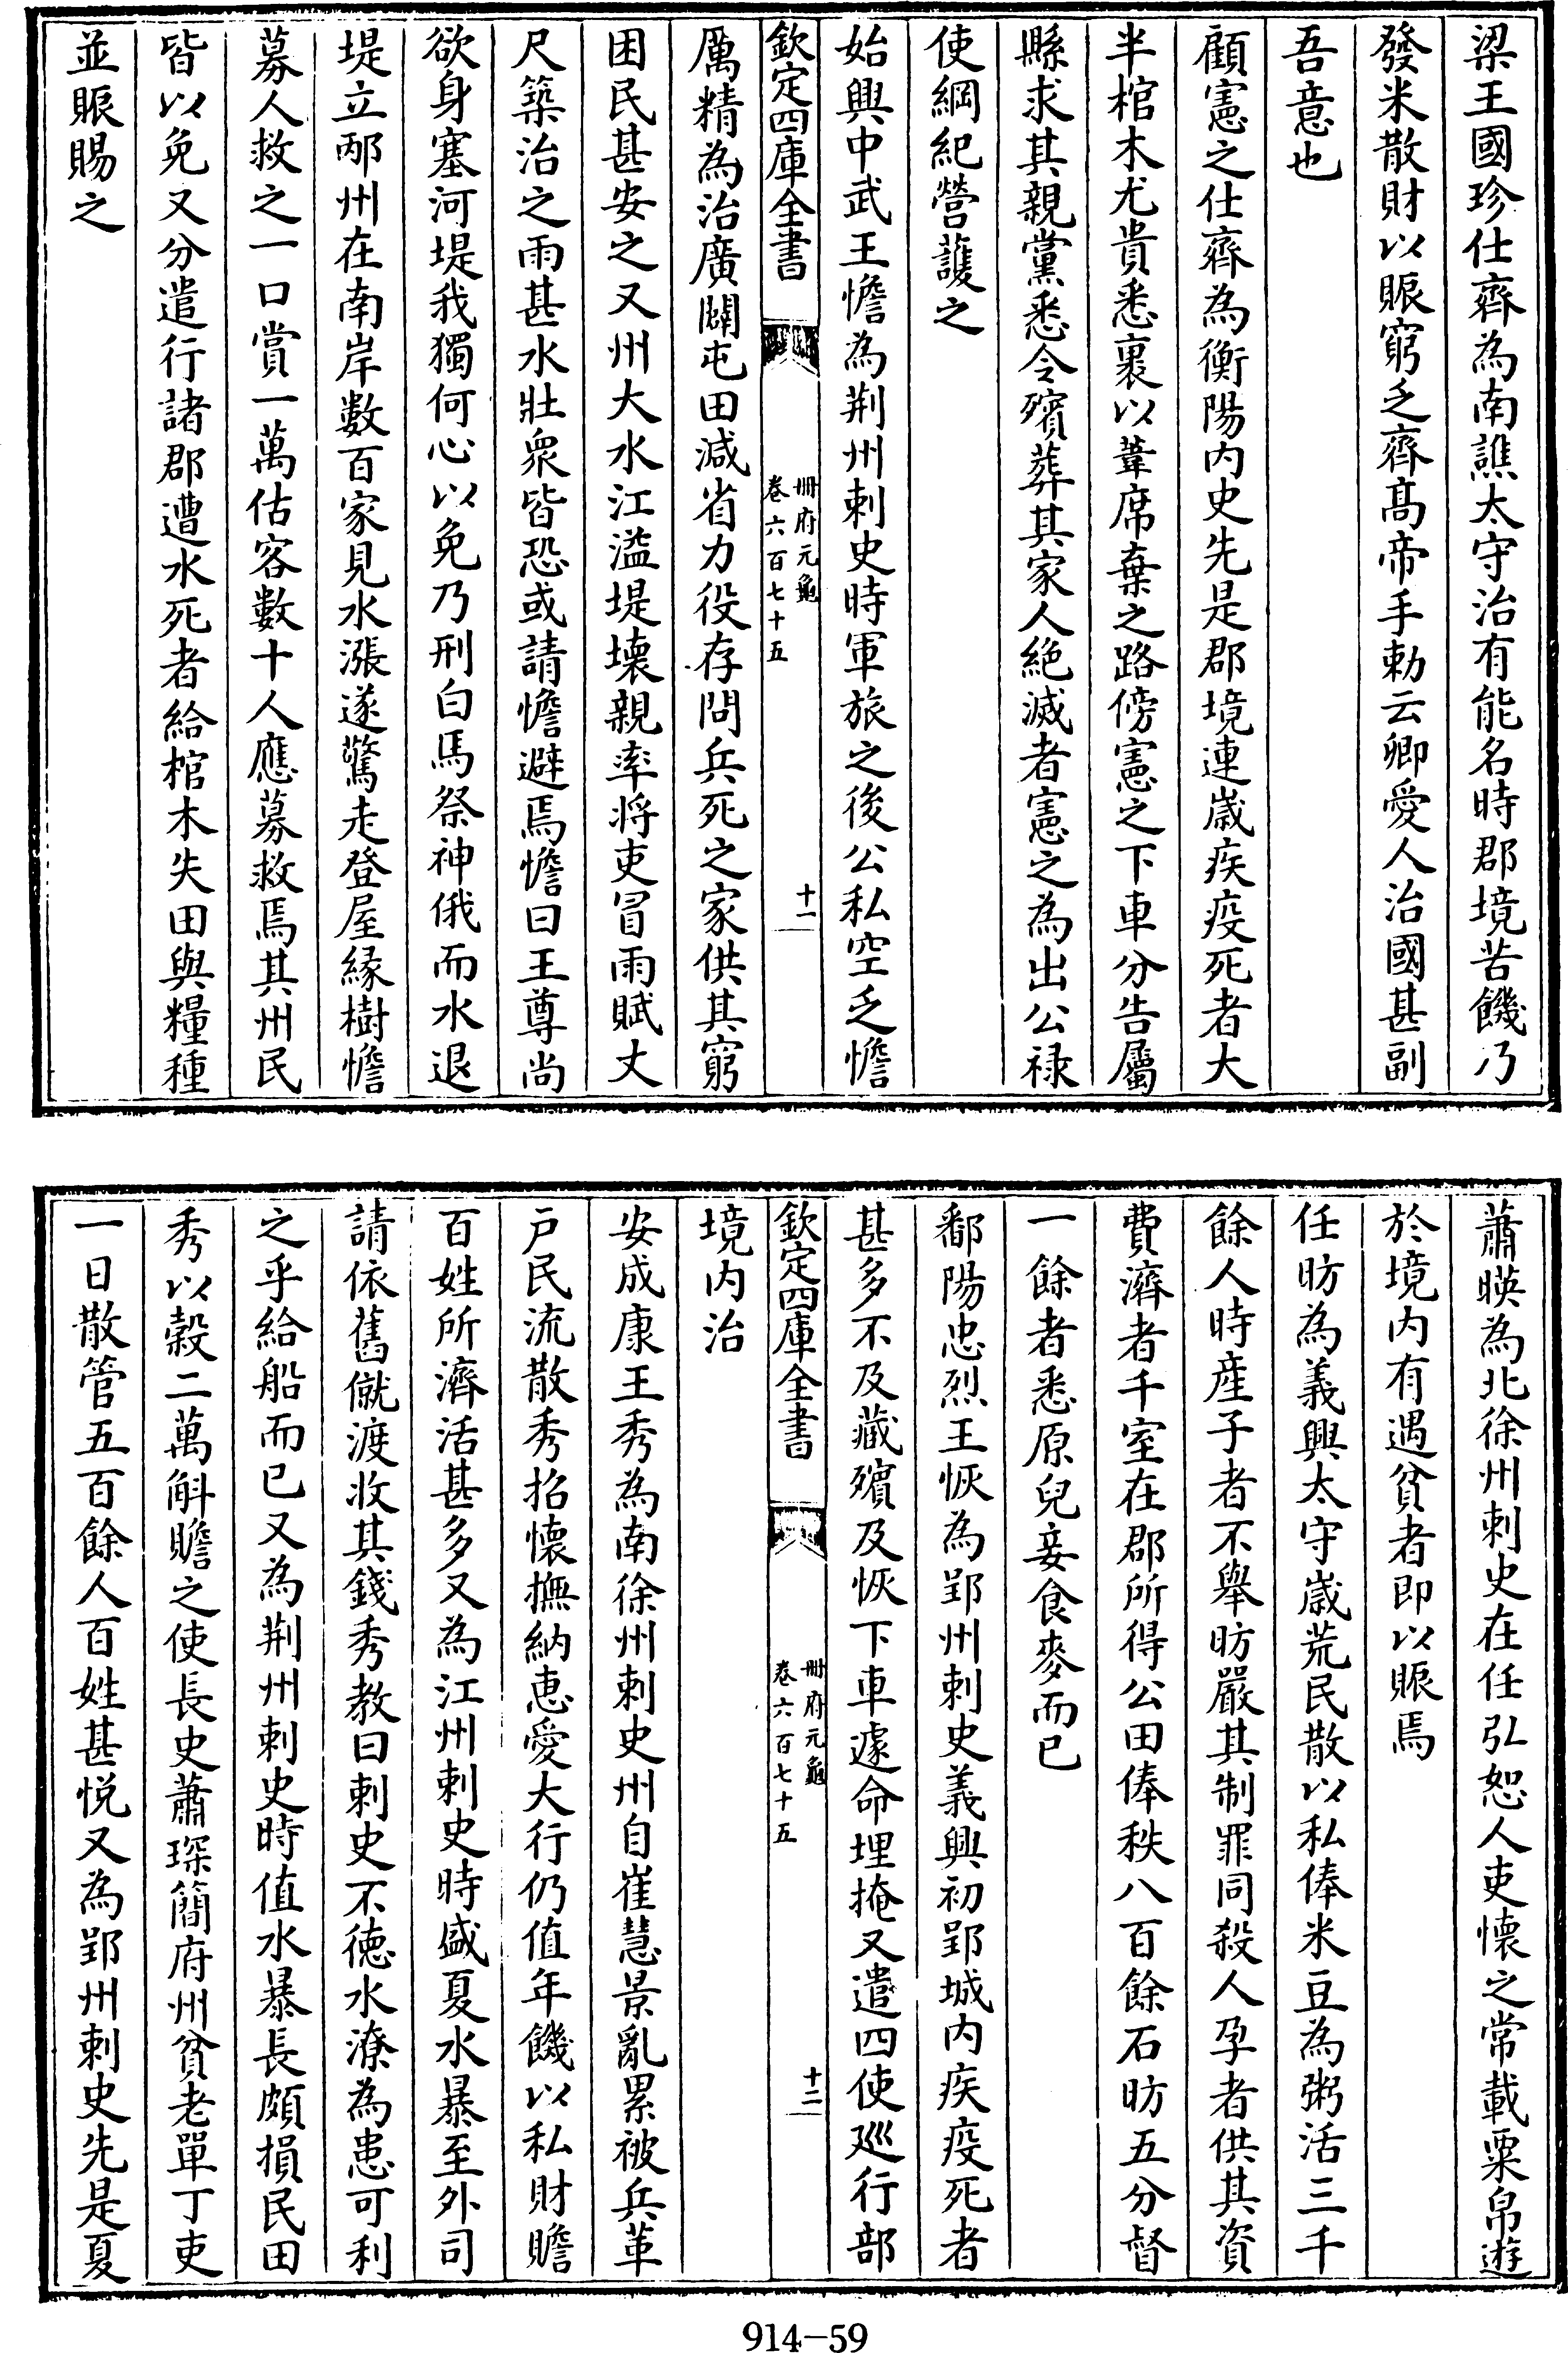 梁王國珍仕齊為南譙太守治有能名時郡境苦饑乃
發米散財以賑窮乏齊髙帝手勅云卿愛人治國甚副
吾意也
顧憲之仕齊為衡陽内史先是郡境連嵗疾疫死者大
半棺木尤貴悉裹以葦席棄之路傍憲之下車分告屬
縣求其親黨悉令殯葬其家人絶滅者憲之為出公禄
使綱紀營䕶之
始興中武王憺為荆州刺史時軍旅之後公私空乏憺
欽定四庫全書
冊府元龜
卷六百七十五
十一
厲精為治廣闢屯田減省力役存問兵死之家供其窮
困民甚安之又州大水江溢堤壊親率將吏冒雨賦丈
尺築治之雨甚水壯衆皆恐或請憺避焉憺曰王尊尚
欲身塞河堤我獨何心以免乃刑白馬祭神俄而水退
堤立邴州在南岸數百家見水漲遂驚走登屋縁樹憺
募人救之一口賞一萬估客數十人應募救焉其州民
皆以免又分遣行諸郡遭水死者給棺木失田與糧種
並賑賜之
蕭暎為北徐州刺史在任弘恕人吏懐之常載粟帛遊
於境内有遇貧者即以賑焉
任昉為義興太守嵗荒民散以私俸米豆為粥活三千
餘人時産子者不舉昉嚴其制罪同殺人孕者供其資
費濟者千室在郡所得公田俸秩八百餘石昉五分督
一餘者悉原兒妾食麥而已
鄱陽忠烈王恢為郢州刺史義興初郢城内疾疫死者
甚多不及藏殯及恢下車遽命埋掩又遣四使廵行部
欽定四庫全書
冊府元龜
卷六百七十五
十二
境内治
安成康王秀為南徐州刺史州自崔慧景亂累被兵革
戸民流散秀招懐撫納恵愛大行仍值年饑以私財贍
百姓所濟活甚多又為江州刺史時盛夏水暴至外司
請依舊僦渡收其錢秀教曰刺史不徳水潦為患可利
之乎給船而已又為荆州刺史時值水暴長頗損民田
秀以穀二萬斛贍之使長史蕭琛簡府州貧老單丁吏
一日散管五百餘人百姓甚悦又為郢州刺史先是夏
914-59